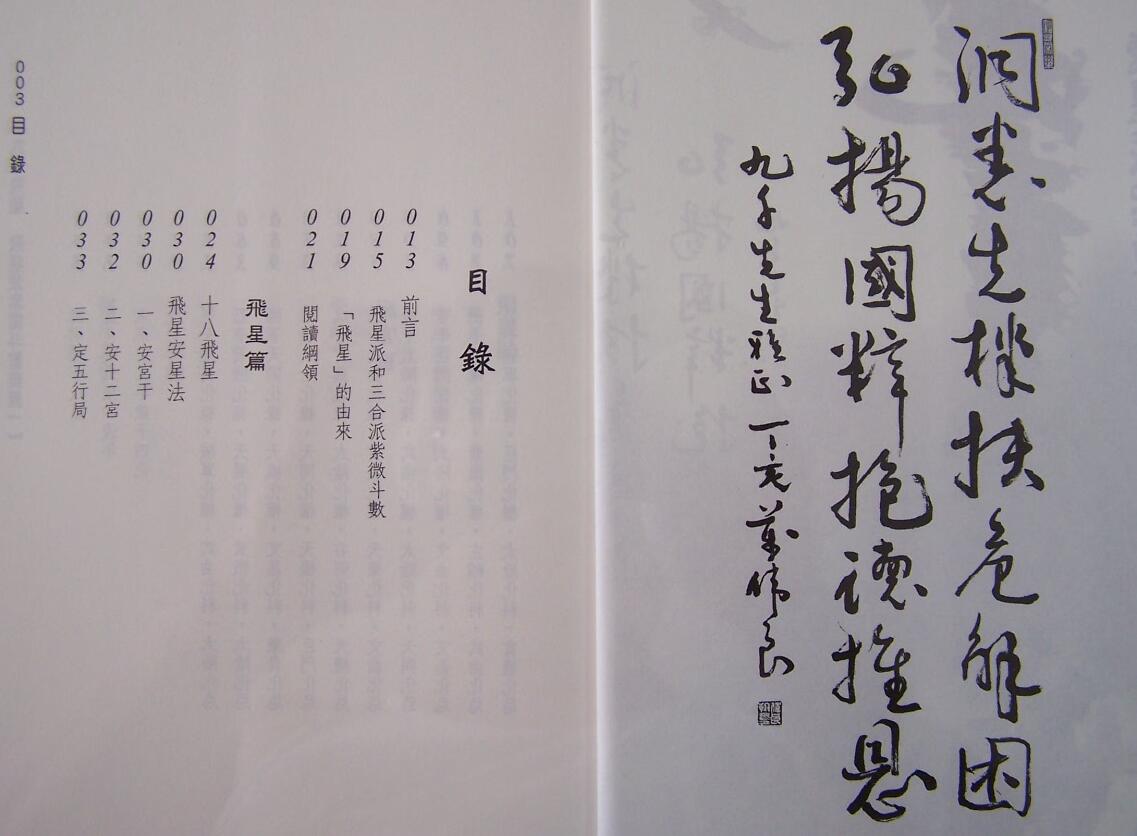 洞悉先機扶危解困
弘揚國粹抱德推恩
九千先生雅正 丁亥 偉良
目錄
013 前言
015 飛星派和三合派紫微斗數
019 「飛星」的由來
021 閱讀綱領
飛星篇
024 十八飛星
030 飛星安星法
030 一、安宮干
032 二、安十二宮
033 三、定五行局
003 目錄